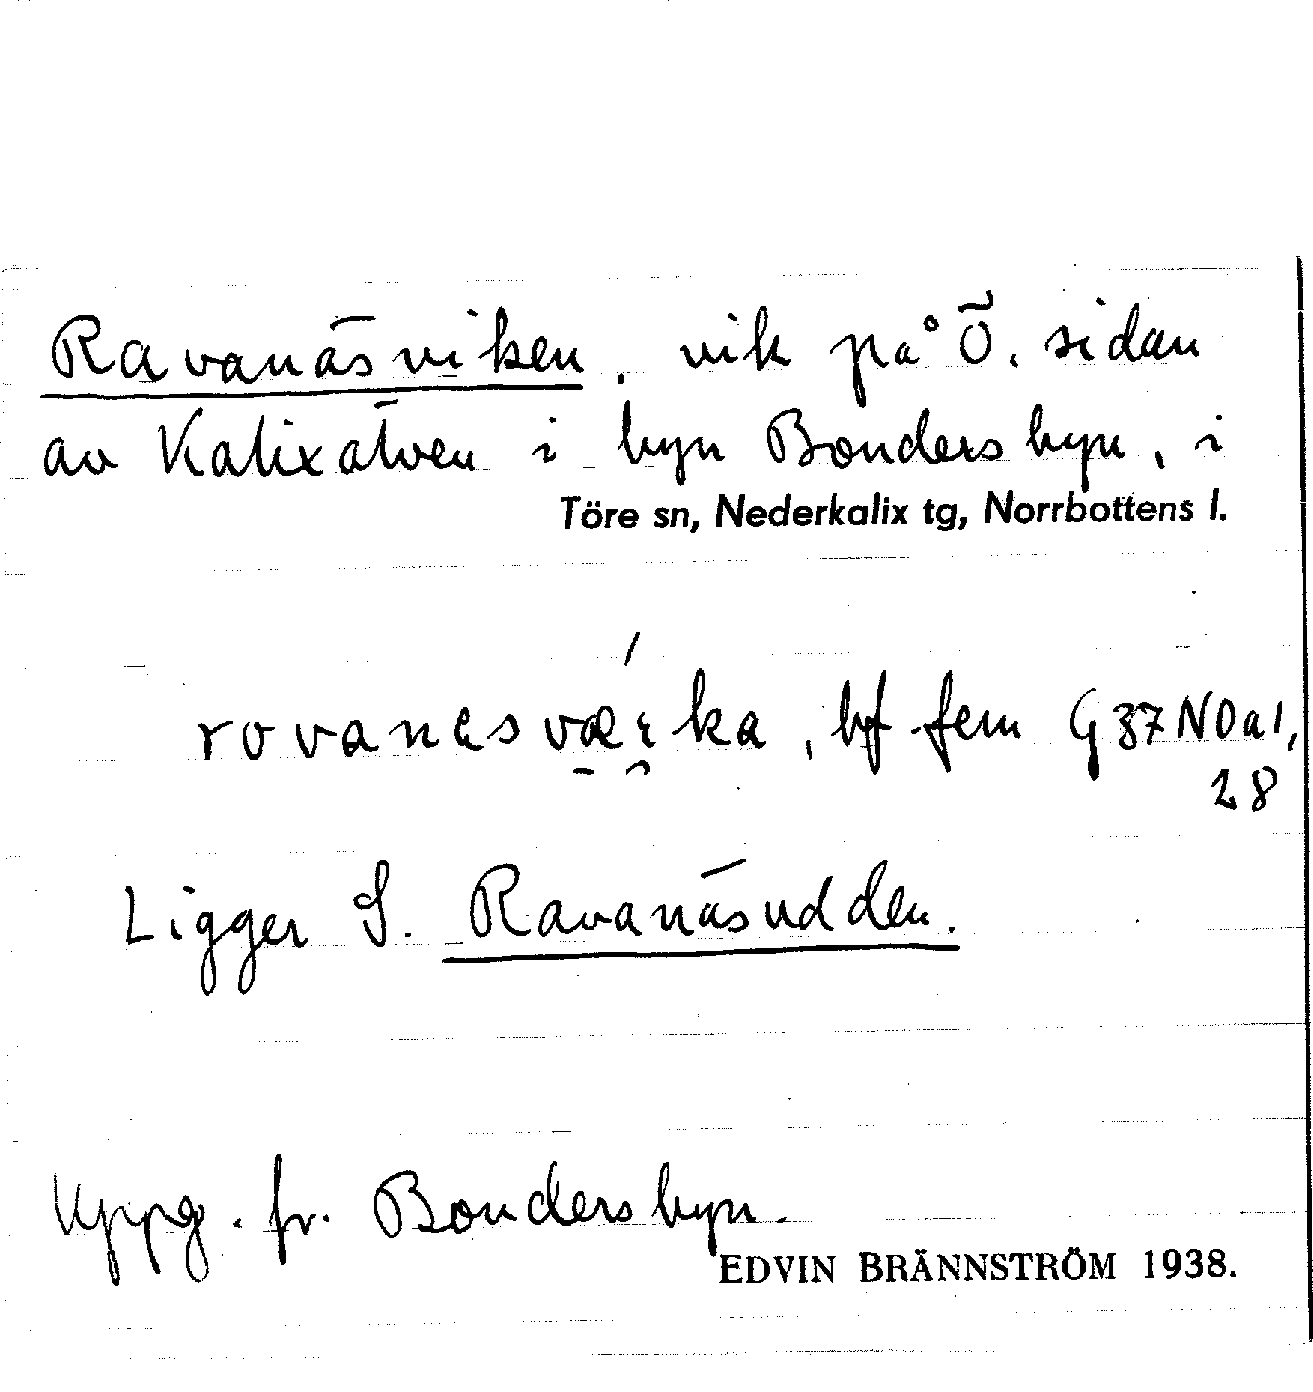 Ravanäsviken, vik på Ö. sidan
av Kalixälven i byn Bondersbyn, i
Töre sn, Nederkalix tg, Norrbottens l.
rovanɛsvæɪka, bf fem G 37 NO a 1,
28
Ligger S. Ravanäsudden.
Uppg. fr. Bondersbyn.
EDVIN BRÄNNSTRÖM 1938.